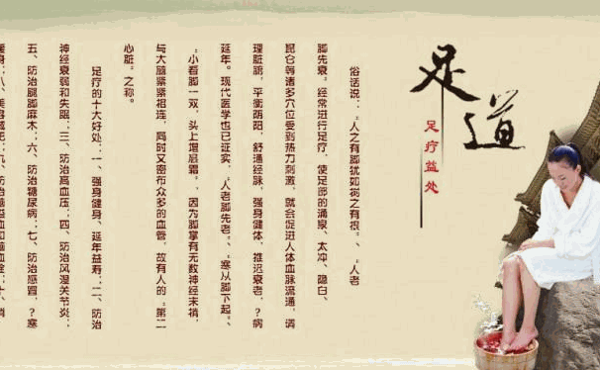 足道
足疗益处
俗话说：“人之有脚犹如树之有根。”、“人老
脚先衰，经常进行足疗，使足部的涌泉、太冲、隐白、
昆仑等诸多穴位受到热力刺激，就会促进人体血脉流通，调
理脏腑，平衡阴阳，舒通经脉，强身健体，推迟衰老，?病
延年。现代医学也已证实，“人老脚先老”、“寒从脚下起”、
“小看脚一双，头上增层霜”，因为脚掌有无数神经末梢，
与大脑紧紧相连，同时又密布众多的血管，故有人的“第二
心脏”之称。
足疗的十大好处：一、强身健身，延年益寿；二、防治
神经衰弱和失眠；三、防治高血压；四、防治风湿关节炎；
五、防治腿脚麻木；六、防治糖尿病；七、防治感冒，?寒